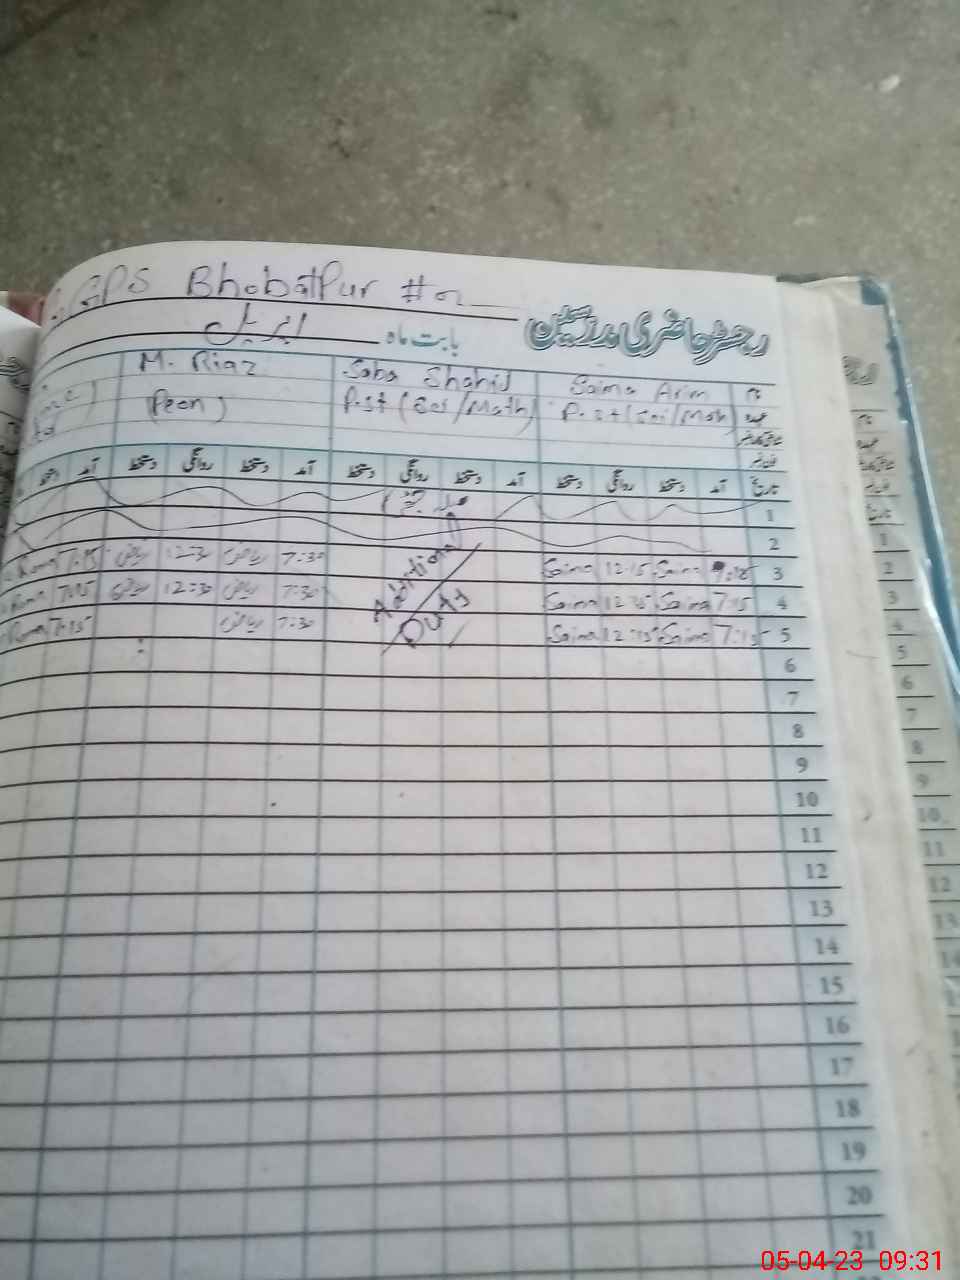 GPS Bhobatpur #2
رجسٹر حاضری مدرسین
بابت ماہ اپریل
نام Saima Arim Saba Shahid M. Riaz
عہدہ P.st (Sci/Math) P.st (Sci/Math) (Peon)
شناختی کارڈ نمبر
فون نمبر
تاریخ آمد دستخط روانگی دستخط آمد دستخط روانگی دستخط آمد دستخط روانگی دستخط آمد
1
2
3 Saima 12:15 Saima 7:30 ریاض 12:30 ریاض 7:15
4 7:15 Saima Saima 7:30 ریاض 12:30 ریاض 7:15
5 7:15 Saima 12:15 Saima 7:30 ریاض 7:15
Additional
Duty
6
7
8
9
10
11
12
13
14
15
16
17
18
19
20
21
نام
عہدہ
تاریخ
1
2
3
4
5
6
7
8
9
10
11
12
13
05-04-23 09:31